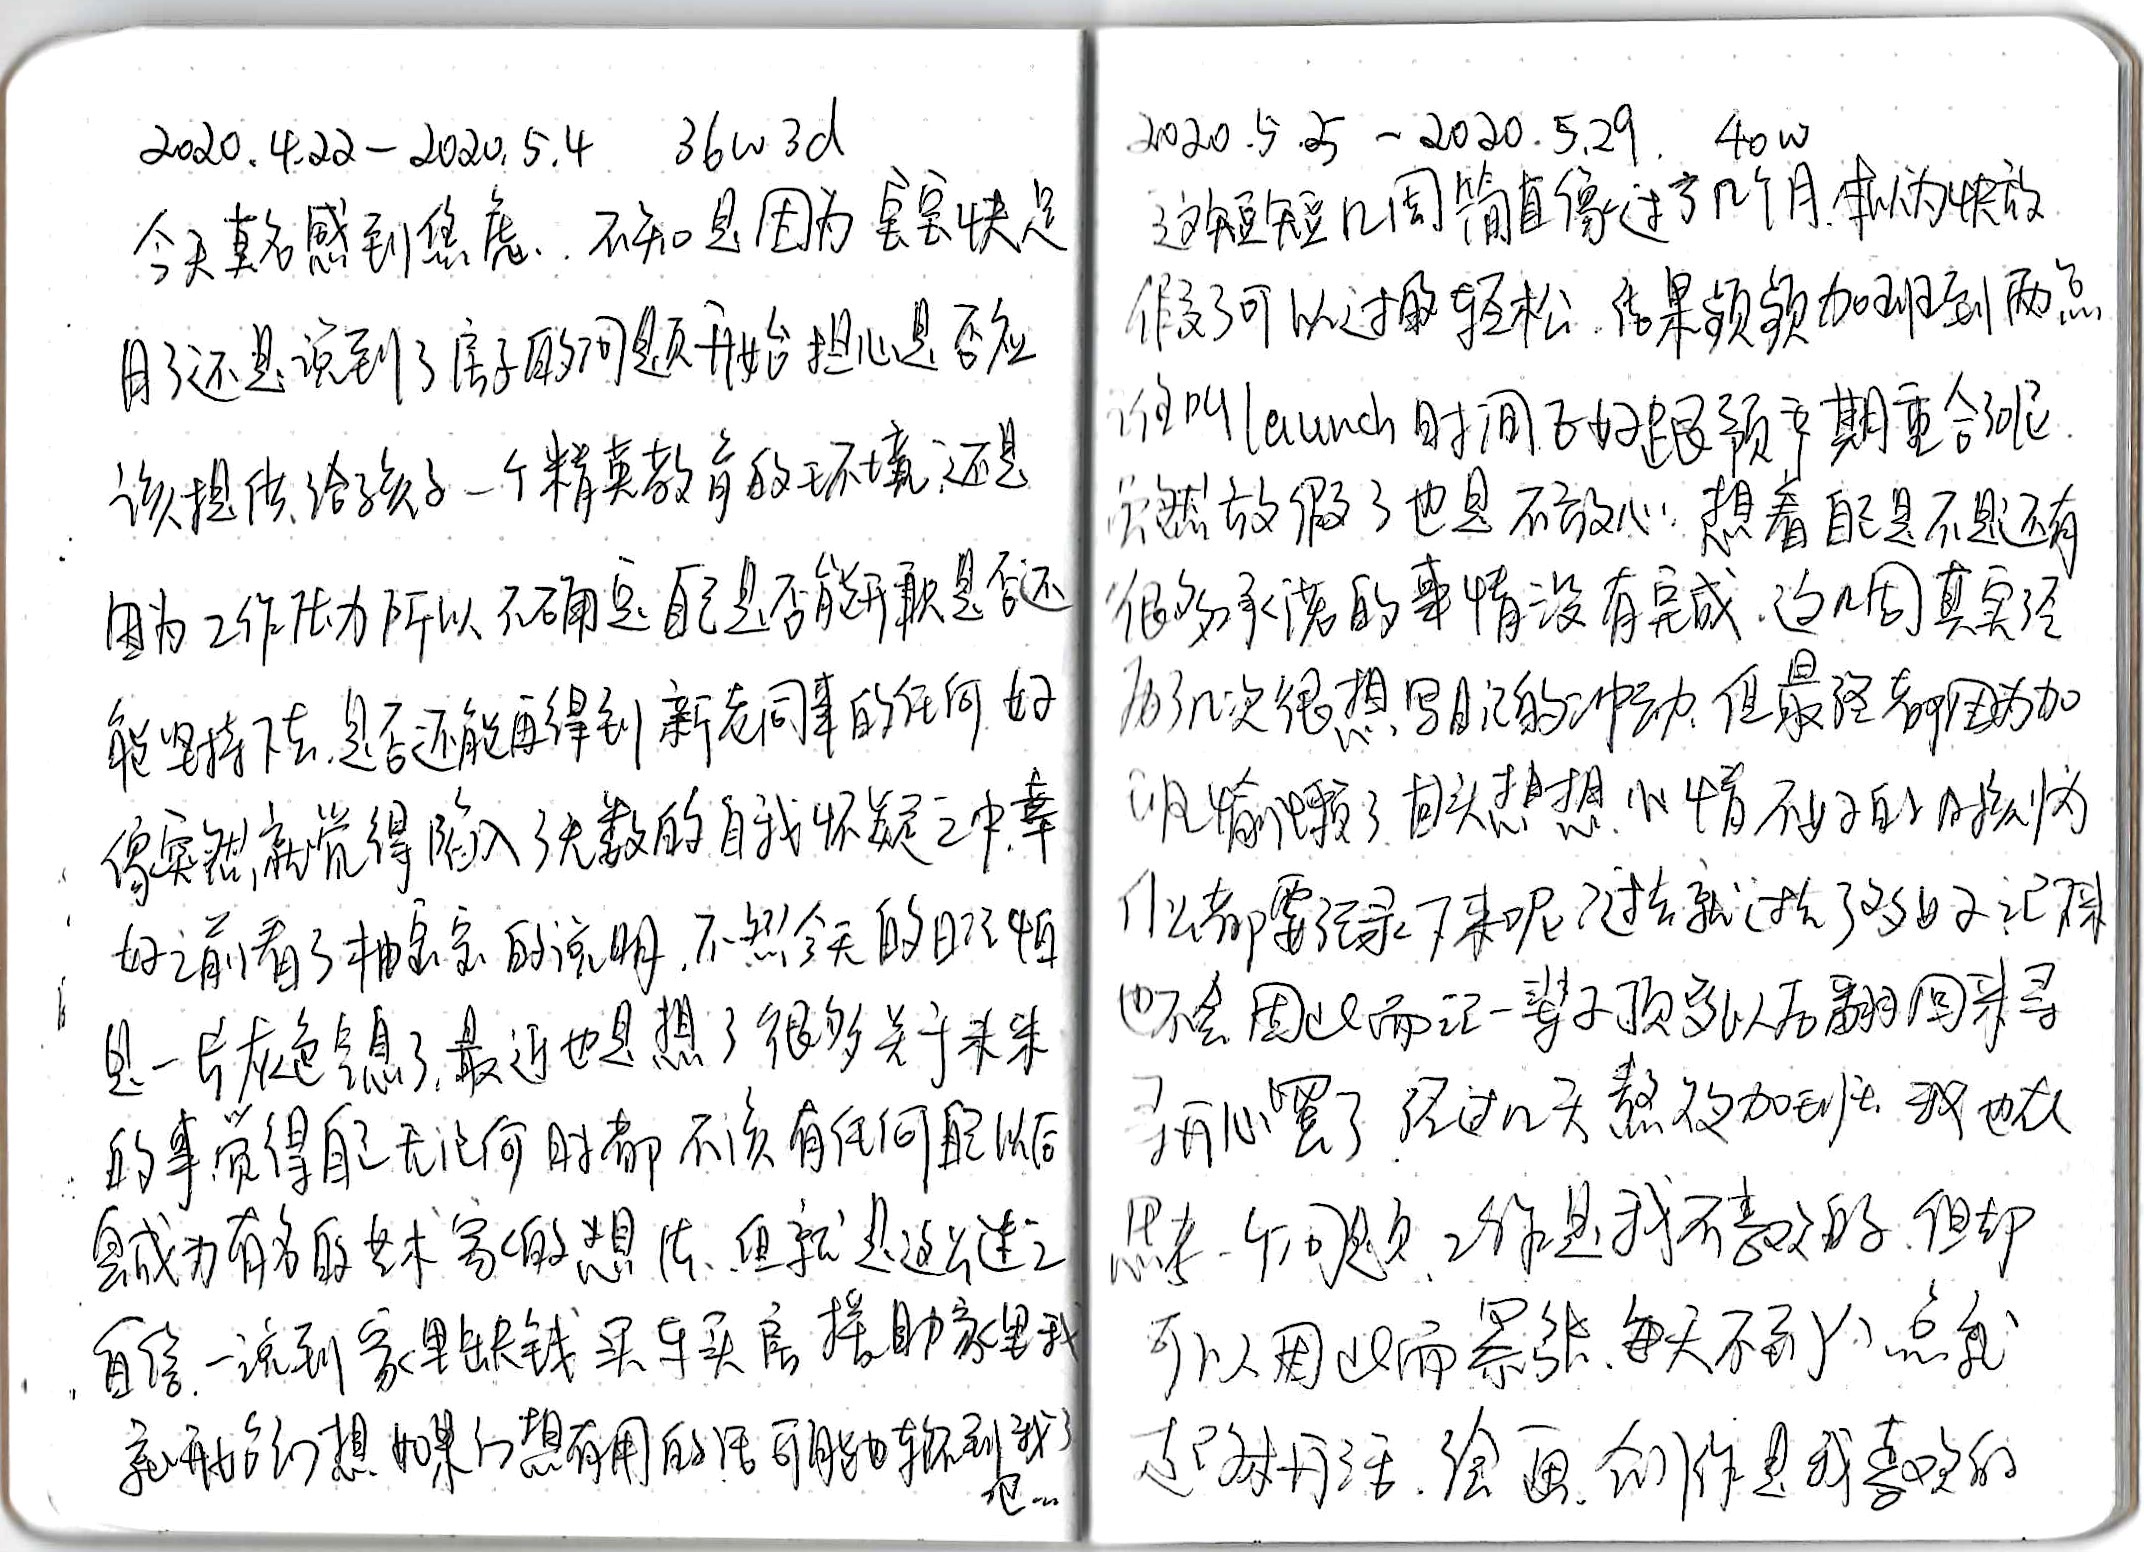 2020.4.22-2020.5.4 36w3d
今天莫名感到焦虑.. 不知是因为宝宝快足
月了还是说到了房子的问题开始担心是否应
该提供给孩子一个精英教育的环境,还是
因为工作压力所以不确定自己是否能开歌是否还
能坚持下去.是否还能再得到新老同事的任何.好
像突然就觉得陷入了无数的自我怀疑之中.幸
好之前看了抽宝宝的说明.不然今天的日记恒
是一片灰色气息了.最近也是想了很多关于未来
的事觉得自己无论何时都不该有任何以后
会成为有名的艺术家的想法.但就是这么迷之
自信.一说到家里缺钱买车买房接助家里我
就开始幻想.如果幻想有用的话可能也轮不到我了
吧...
2020.5.25~2020.5.29. 40w
这短短几周简直像过了几个月.本以为快放
假了可以过的轻松.结果频频加班到两点
谁叫launch时间正好跟预产期重合了呢.
虽然放假了也是不放心.想着自己是不是还有
很多承诺的事情没有完成.这几周真实经
历了几次很想写日记的冲动.但最终都因为加
班偷懒了.回头想想.心情不好的时候为
什么都要记录下来呢?过去就过去了多好.记下来
也不会因此而记一辈子顶多以后翻回来寻
寻开心罢了.经过几天熬夜加班.我也在
思考一个问题.工作是我不喜欢的.但却
可以因此而紧张.每天不到八点就
起来干活.绘画.创作是我喜欢的